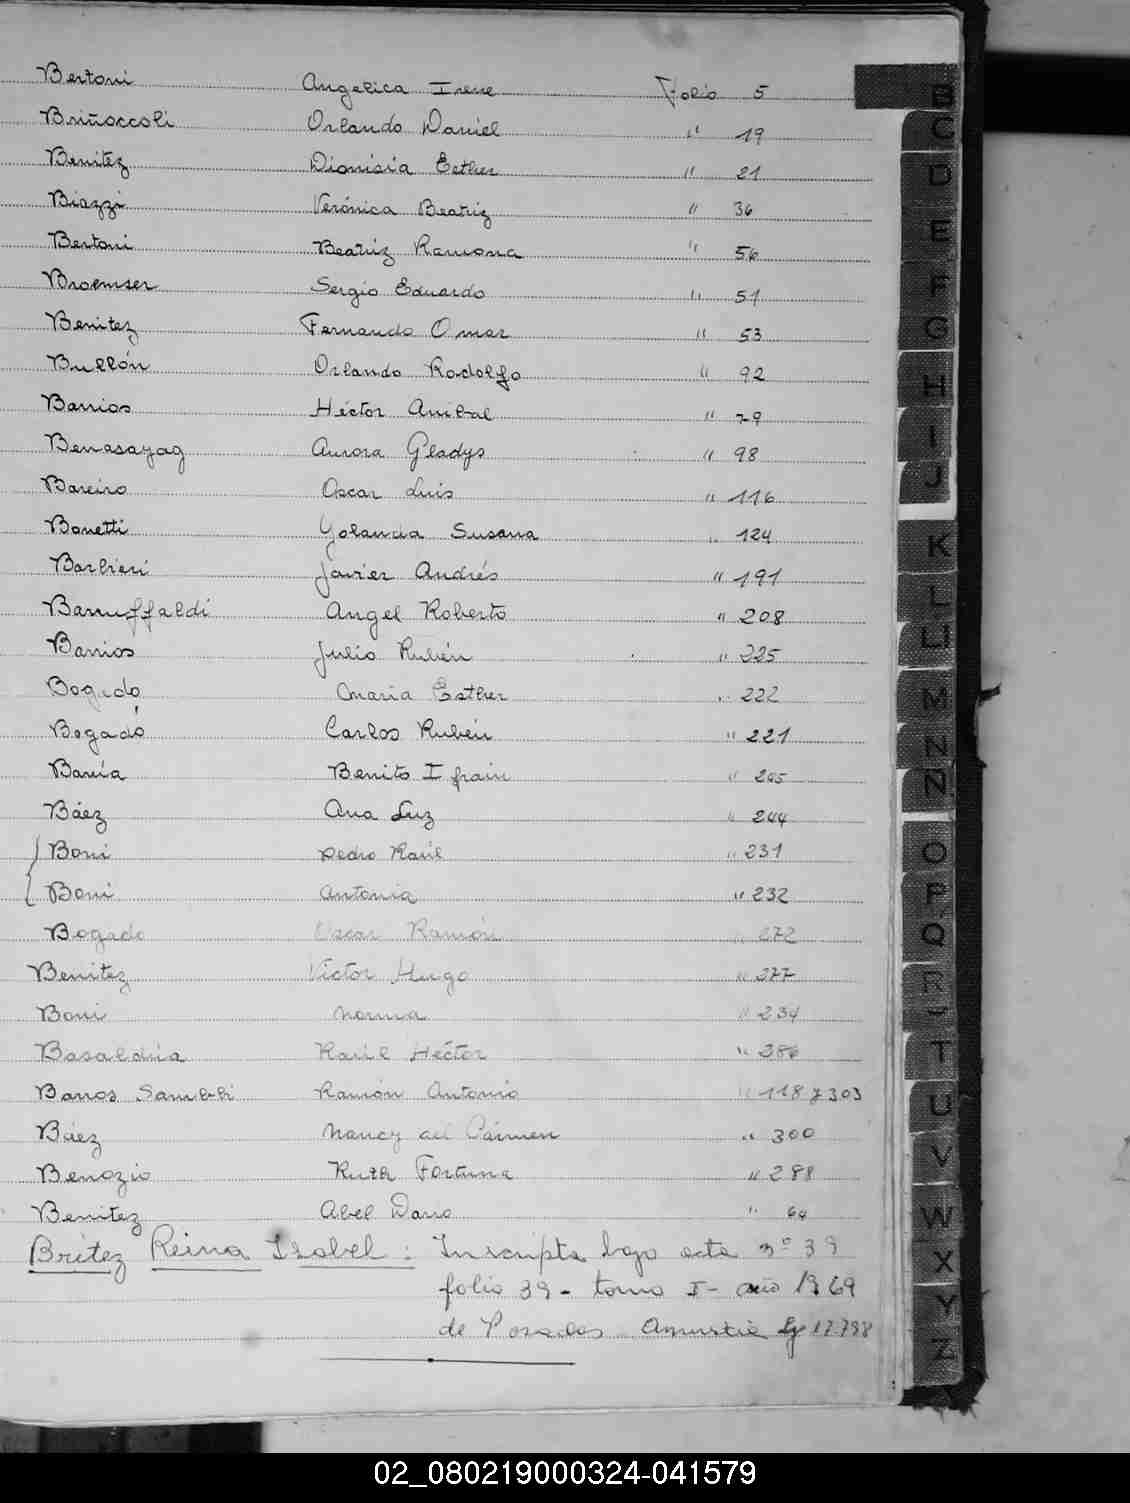 Bertoni Angelica Irene Folio 5
Briñoccoli Orlando Daniel " 19
Benitez Dionisia Esther " 21
Biazzi Verónica Beatriz " 36
Bertoni Beatriz Ramona " 56
Broemser Sergio Eduardo " 51
Benitez Fernando Omar " 53
Bullón Orlando Rodolfo " 92
Barrios Héctor Anibal " 79
Benasayag Aurora Gladys " 98
Bareiro Oscar Luis " 116
Bonetti Yolanda Susana " 124
Barbieri Javier Andrés " 191
Barruffaldi Angel Roberto " 208
Barrios Julio Rubén " 225
Bogado Maria Esther " 222
Bogado Carlos Rubén " 221
Baría Benito Ifrain " 205
Báez Ana Luz " 244
Boni Pedro Raúl " 231
Boni Antonia " 232
Bogado Oscar Ramón " 272
Benitez Victor Hugo " 277
Boni Norma " 234
Basaldúa Raúl Héctor " 286
Ramón Antonio " 118 y 303
Báez Nancy del Cármen " 300
Benozio Ruth Fortuna " 288
Benitez Abel Dario " 64
Britez Reina Isabel : Inscripta bajo acta nº 39
folio 39 - tomo I - año 1969
de Posadas Amnistia Ly 17.798
B
C
D
E
F
G
H
I
J
K
L
LL
M
N
Ñ
O
P
Q
R
T
U
V
W
X
Y
Z
02_080219000324-041579